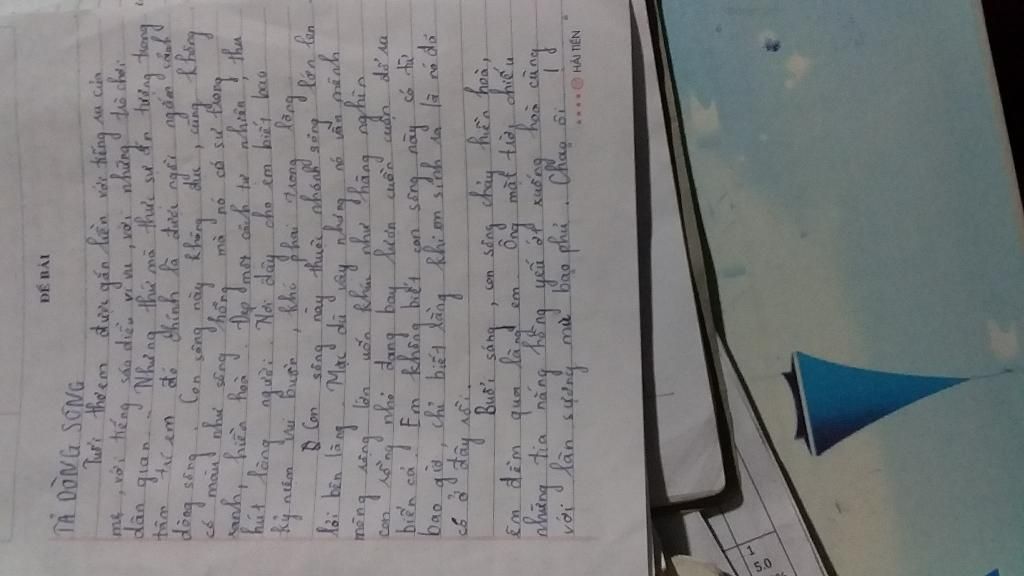 ĐỀ BÀI
TẢ DÒNG SÔNG
Tuổi thơ em được gắn liền với tiếng ru của
mẹ, với tiếng sáo diều vi vu, với những trò chơi
dân gian... Nhưng thứ mà thực sự ấn tượng trong
tâm trí em đó chính là được ngồi ngắm cảnh
dòng sông. Con sông này không dài, cũng không
có màu như sông hồng mà nó có sự trong
xanh, hiền hoà đẹp một cách tự nhiên, thu
hút lòng người. Nơi đây cho em biết bao
kỷ niệm vui buồn, khó phai trong lòng.
Con sông này thuộc nhánh sông lớn len
lỏi bên làng. Mặc dù vậy nhưng nó vẫn mênh
mông rộng lớn uốn khúc như hàng nghìn
con rồng nhỏ đang bay lượn cuồn cuộn đổ ra
biển cả. Em không biết con sông này có từ
bao giờ, chỉ biết rằng khi em sinh ra là nó đã
có ở đây rồi.
Buổi sáng, con sông chảy hiền hoà,
êm đềm qua làng em. Ông mặt trời chiếu
những tia nắng hồng yếu ớt xuống hoà cùng
với làn sương mờ bao phủ. Chao ôi!
HẢI TIẾN
1
5.0